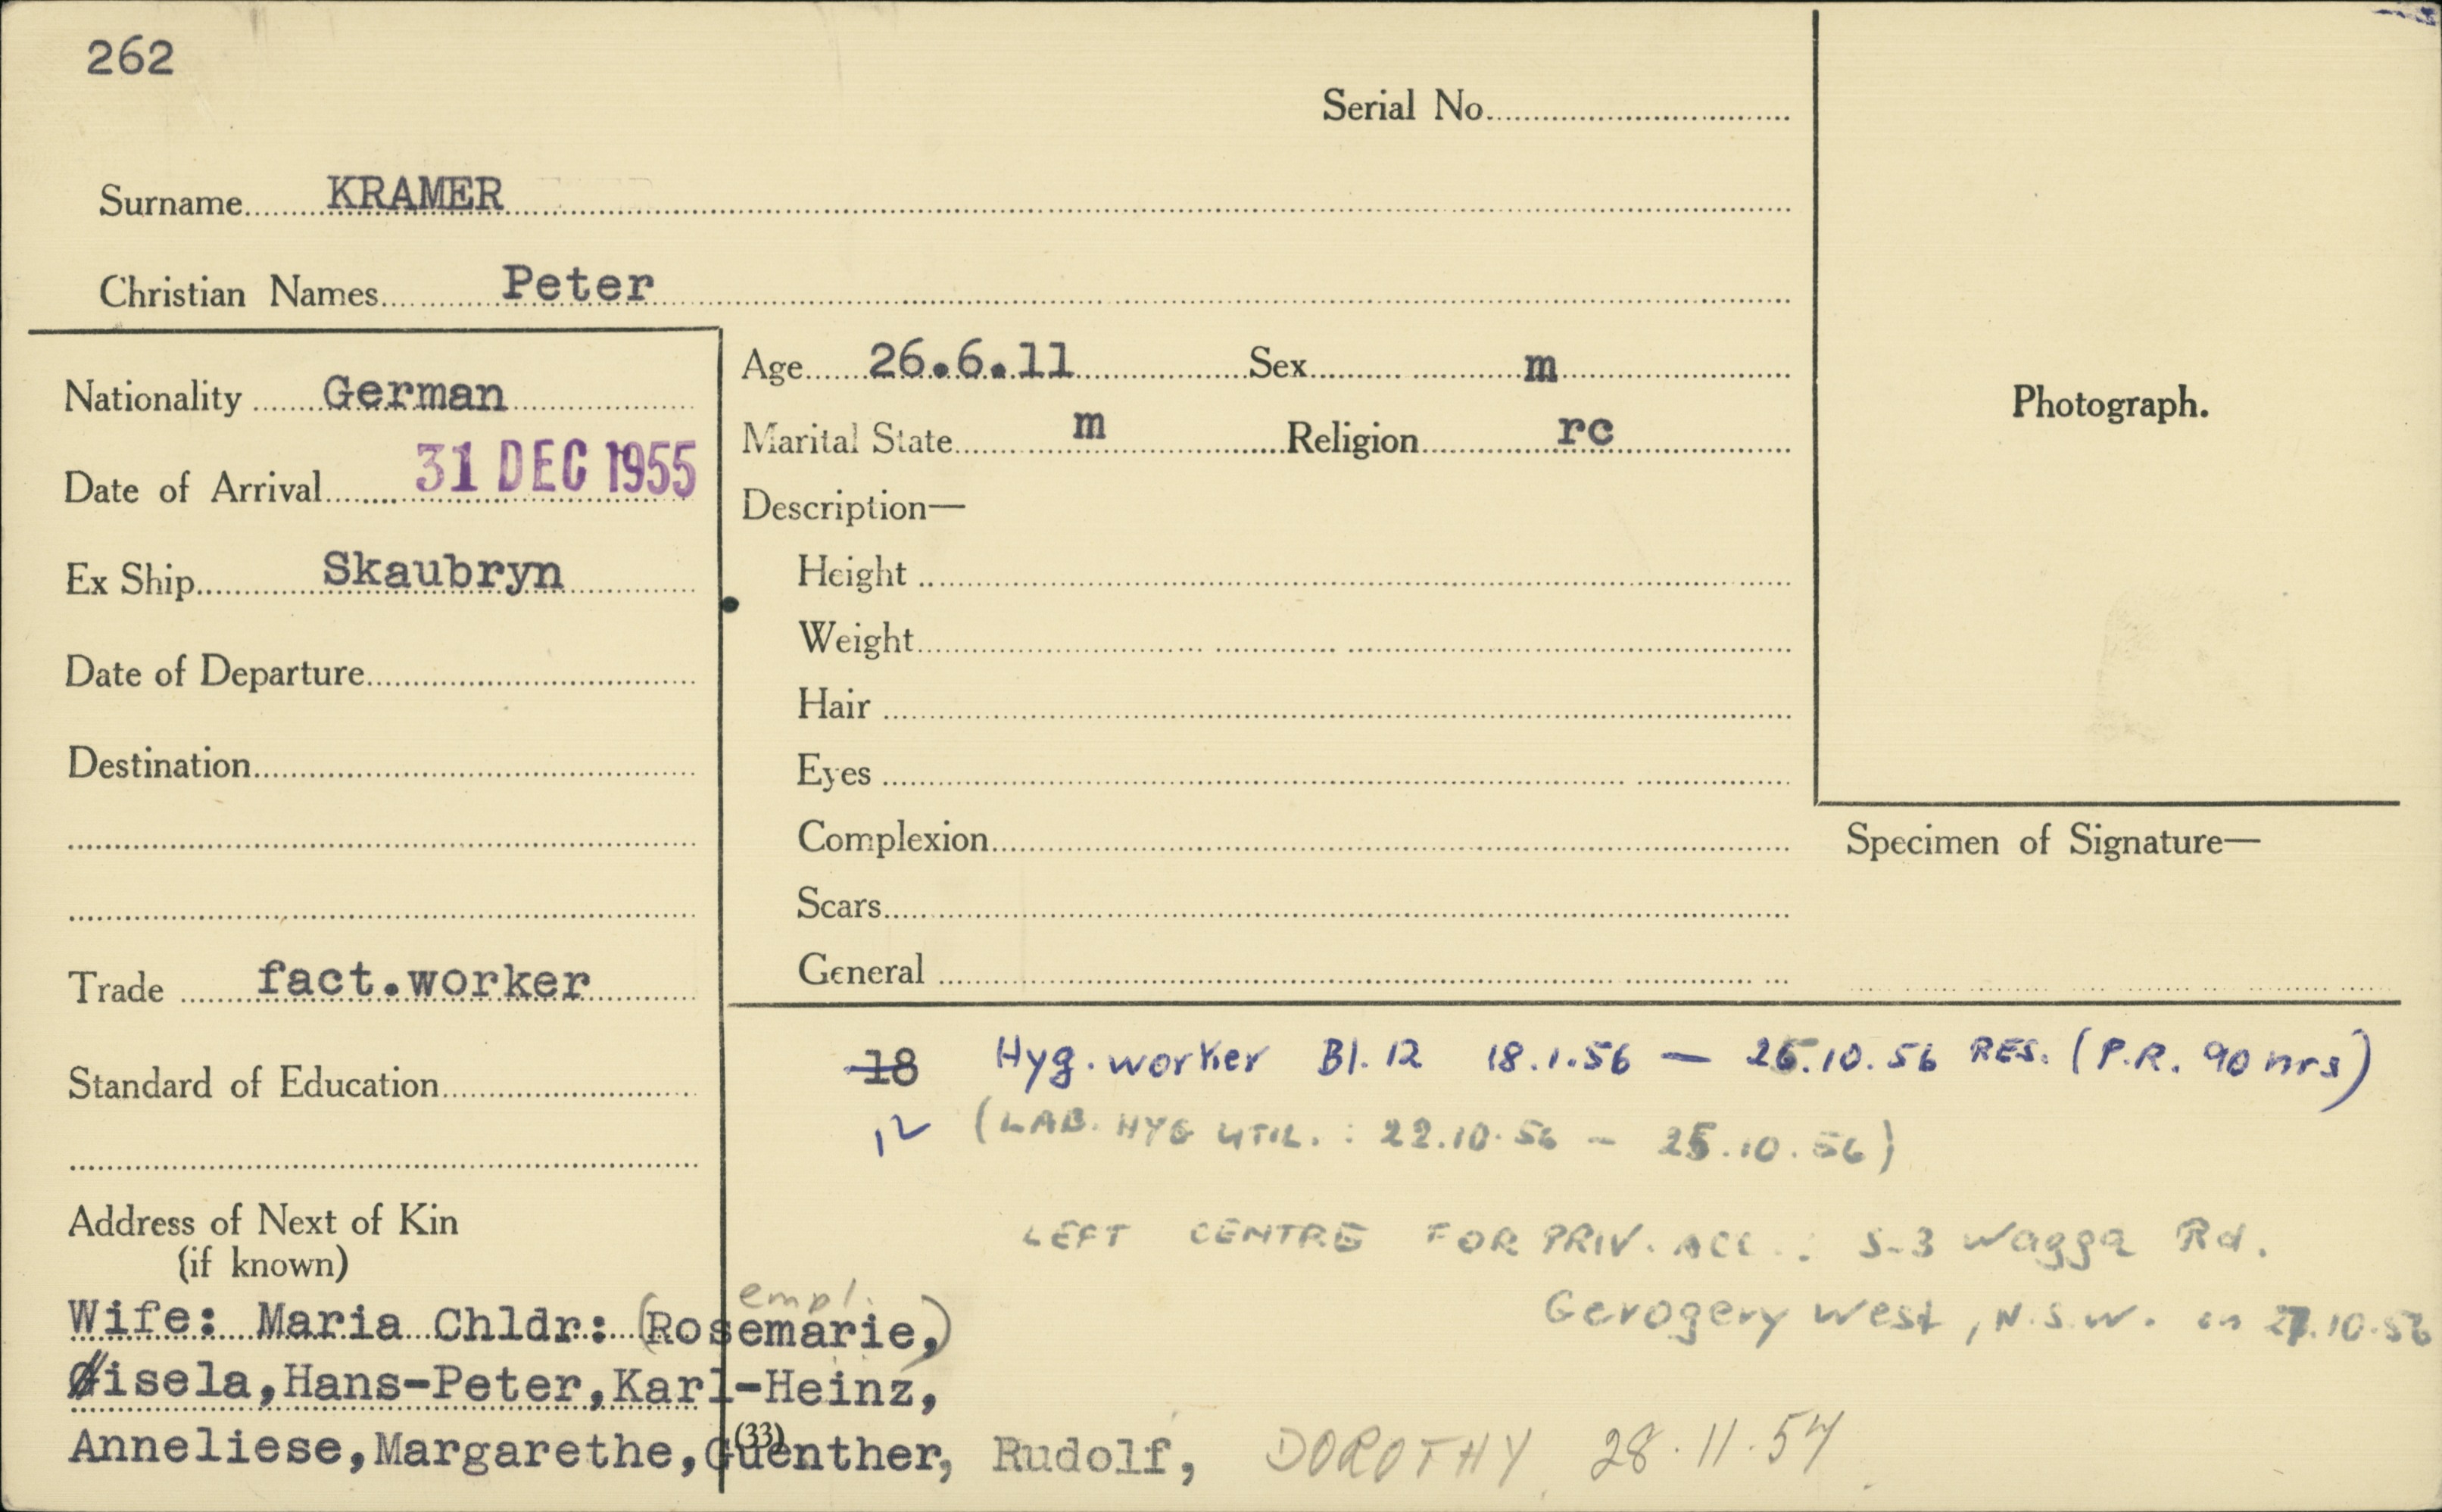 262
Serial No.
Surname KRAMER
Christian Names Peter
Nationality German
Date of Arrival 31 DEC 1955
Ex Ship Skaubryn
Date of Departure
Destination
Trade fact.worker
Standard of Education
Address of Next of Kin
(if known)
empl.
Wife: Maria Chldr: (Rosemarie,)
Gisela,Hans-Peter,Karl-Heinz,
Anneliese,Margarethe,Guenther, Rudolf, DOROTHY 28.11.57
(33)
Age 26.6.11 Sex m
Marital State m Religion rc
Description—
Height
Weight
Hair
Eyes
Complexion
Scars
General
Photograph.
Specimen of Signature—
18 Hyg. worker Bl. 12 18.1.56 — 26.10.56 RES. (P.R. 90 hrs)
12 (LAB. HYG UTIL. : 22.10.56 - 25.10.56)
LEFT CENTRE FOR PRIV. ACC. : S-3 Wagga Rd.
Gerogery West, N.S.W. on 27.10.56